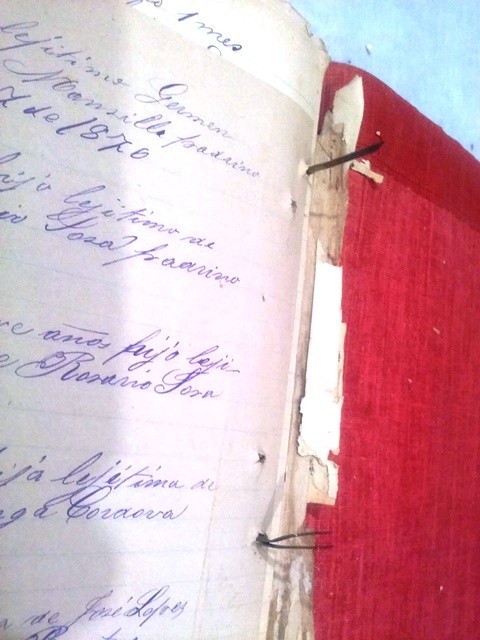 1 mes
lejitimo German
Mansilla padrino
7 de 1876
hijo lejitimo de
Sosa padrino
años hijo leji-
Rosario Sosa
lejitima de
Cordova
de José Lopez